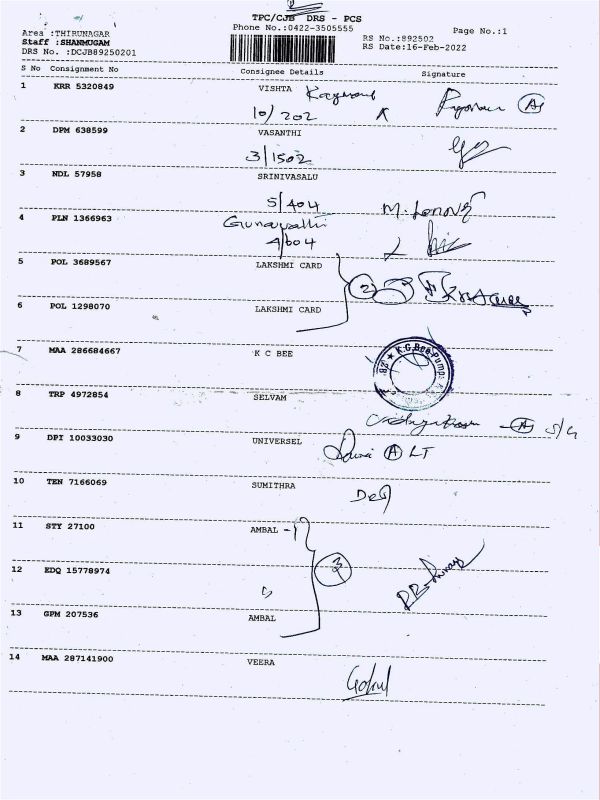 2
TPC/CJB DRS - PCS
Area :THIRUNAGAR Phone No.:0422-3505555 Page No.:1
Staff :SHANMUGAM RS No.:892502
DRS No. :DCJB89250201 RS Date:16-Feb-2022
S No Consignment No Consignee Details Signature
1 KRR 5320849 VISHTA
10/202
2 DPM 638599 VASANTHI
3/1502
3 NDL 57958 SRINIVASALU
5/404
4 PLN 1366963 Gunavathi
4/604
5 POL 3689567 LAKSHMI CARD
2
6 POL 1298070 LAKSHMI CARD
7 MAA 286684667 K C BEE
K.G.Bee Pumps
8 TRP 4972854 SELVAM
A S/G
9 DPI 10033030 UNIVERSEL
A LT
10 TEN 7166069 SUMITHRA
11 STY 27100 AMBAL
3
12 EDQ 15778974
13 GPM 207536 AMBAL
14 MAA 287141900 VEERA
Gokul